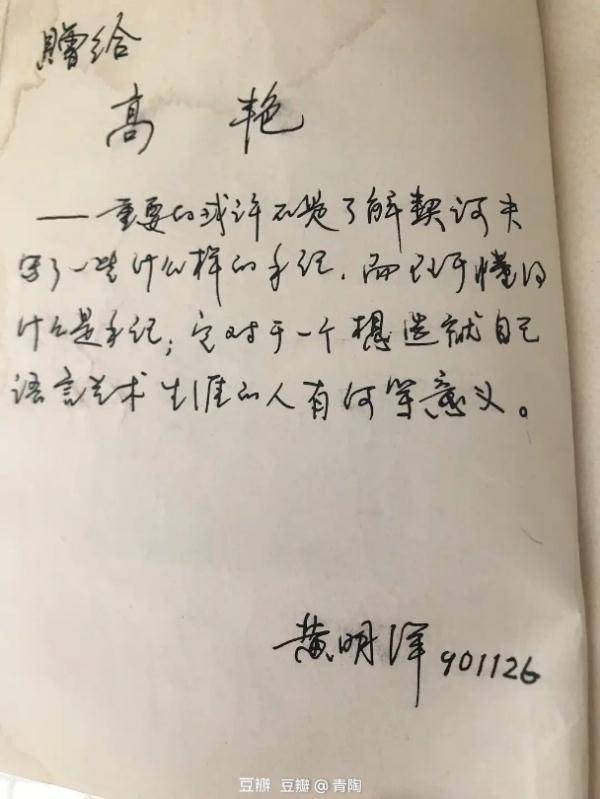 贈给
高 艳
——重要的或许不是了解契诃夫
写了一些什么样的手纪，而在于懂得
什么是手纪；它对于一个想造就自己
语言艺术生涯的人有何等意义。
黄明洋 901126
豆瓣 豆瓣@青陶